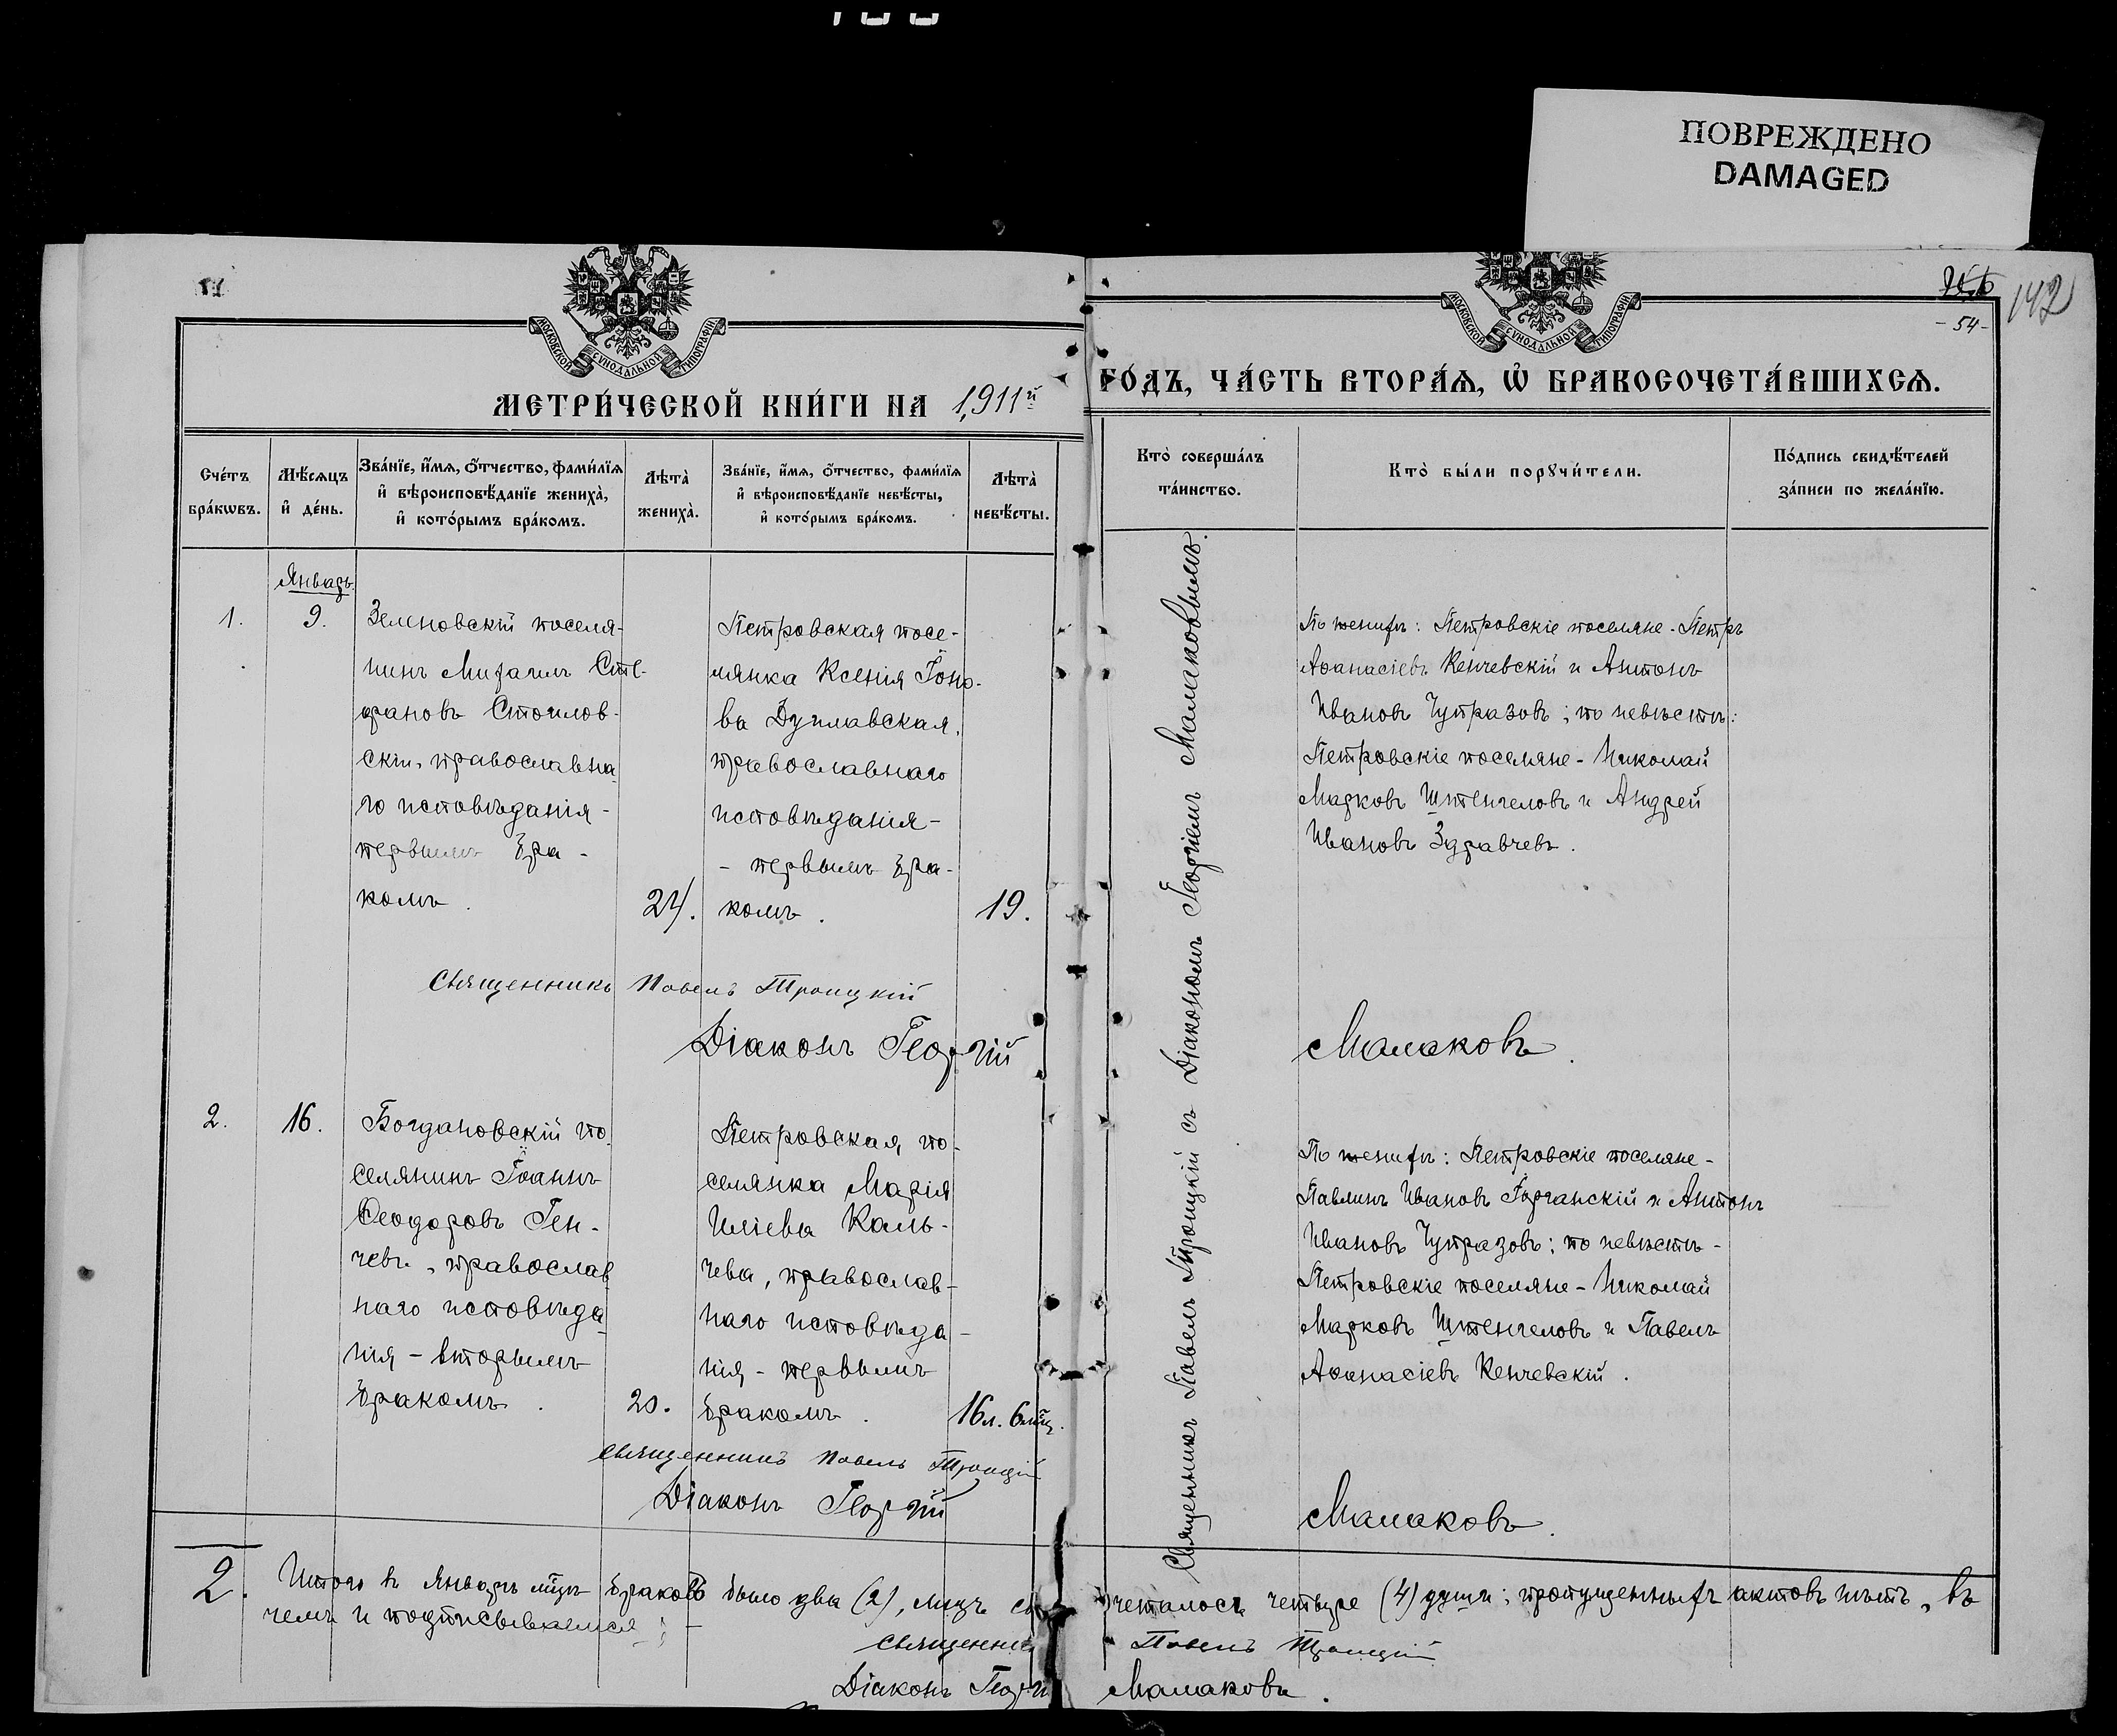 ПОВРЕЖДЕНО
DAMAGED
142
- 54 -
МОСКОВСКОЙ СѴНОДАЛЬНОЙ ТИПОГРАФІИ
МОСКОВСКОЙ СѴНОДАЛЬНОЙ ТИПОГРАФІИ
МЕТРИ́ЧЕСКОЙ КНИ́ГИ НА 1911й
ГО́ДЪ, ЧА́СТЬ ВТОРА́Ѧ, Ѡ҆ БРАКОСОЧЕТА́ВШИХСѦ.
Сче́тъ
бра́кѡвъ.
Мѣ́сяцъ
и҆ де́нь.
Зва́нїе, и҆́мя, о҆́тчество, фами́лїя
и҆ вѣроисповѣ́данїе жениха̀,
и҆ кото́рымъ бра́комъ.
Лѣта̀
жениха̀.
Зва́нїе, и҆́мя, о҆́тчество, фами́лїя
и҆ вѣроисповѣ́данїе невѣ́сты,
и҆ кото́рымъ бра́комъ.
Лѣта̀
невѣ́сты.
Кто̀ соверша́лъ
та́инство.
Кто̀ бы́ли порꙋчи́тели.
По́дпись свидѣ́телей
за́писи по жела́нїю.
Январь.
1.
9.
Зеленовскій поселя-
нинъ Михаилъ Сте-
фановъ Стоилов-
скій, православна-
го исповѣданія -
первымъ бра-
комъ.
24.
Петровская посе-
лянка Ксенія Іоно-
ва Дуплавская,
православнаго
исповѣданія -
- первымъ бра-
комъ.
19.
Священникъ Павелъ Троицкій съ Діакономъ Георгіемъ Малаковымъ.
По женихѣ: Петровскіе поселяне - Петръ
Аѳанасіевъ Кенчевскій и Антонъ
Ивановъ Чупразовъ; по невѣстѣ:
Петровскіе поселяне - Николай
Марковъ Штенгеловъ и Андрей
Ивановъ Здравчевъ.
Священникъ Павелъ Троицкій
Діаконъ Георгій Малаковъ.
2.
16.
Богдановскій по-
селянинъ Іоаннъ
Ѳеодоровъ Ген-
чевъ, православ-
наго исповѣда-
нія - вторымъ
бракомъ.
20.
Петровская по-
селянка Марія
Иліева Каль-
чева, православ-
наго исповѣда-
нія - первымъ
бракомъ.
16л. 6мѣц.
По женихѣ: Петровскіе поселяне -
Павлинъ Ивановъ Горчанскій и Антонъ
Ивановъ Чупразовъ; по невѣстѣ -
Петровскіе поселяне - Николай
Марковъ Штенгеловъ и Павелъ
Аѳанасіевъ Кенчевскій.
Священникъ Павелъ Троицкій
Діаконъ Георгій Малаковъ.
2. Итого въ Январѣ мѣцѣ браковъ было два (2), лицъ сочеталось четыре (4) души; пропущенныхъ актовъ нѣтъ, въ
чемъ и подписываемся: -
Священникъ Павелъ Троицкій
Діаконъ Георгій Малаковъ.